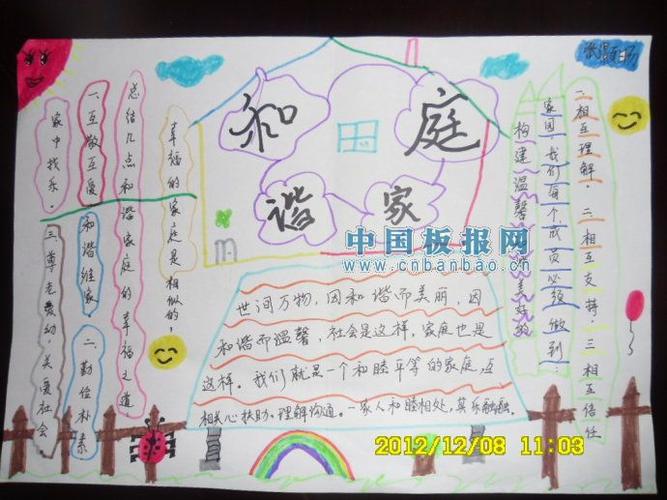 和谐
家庭
幸福的家庭是相似的,
总结几点和谐家庭的幸福之道
一、互敬互爱
和谐维家
二、勤俭朴素
家中找乐。
三、尊老爱幼,关爱社会
世间万物,因和谐而美丽,因
和谐而温馨,社会是这样,家庭也是
这样。我们就是一个和睦平等的家庭,互
相关心扶助、理解沟通。一家人和睦相处,其乐融融。
构建温馨 美好的
家园,我们每个成员必须做到:
相互理解、二.相互支持,三相互信任
中国板报网
www.cnbanbao.cn
2012/12/08 11:03